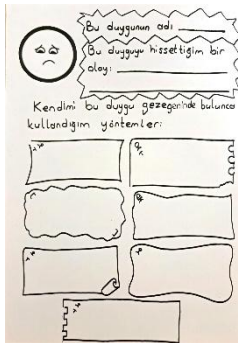 Bu duygunun adı
Bu duyguyu hissettiğim bir
olay:
Kendimi bu duygu gezegeninde bulunca
kullandığım yöntemler: